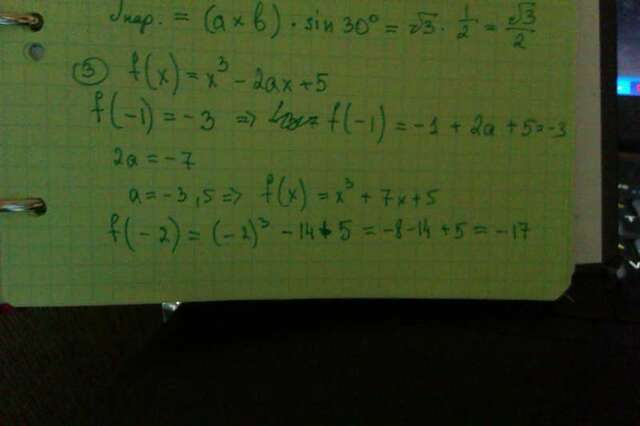 Sпар. = (a × b) · sin 30° = √3 · 1/2 = √3/2
③ f(x) = x³ - 2ax + 5
f(-1) = -3 => f(-1) = -1 + 2a + 5 = -3
2a = -7
a = -3,5 => f(x) = x³ + 7x + 5
f(-2) = (-2)³ - 14 + 5 = -8 - 14 + 5 = -17